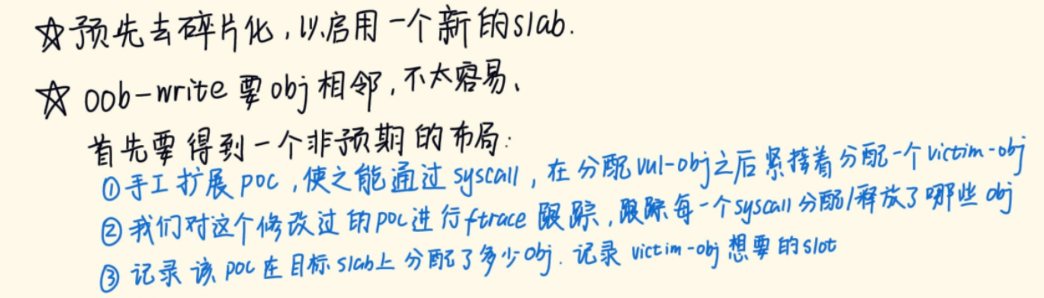 ☆预先去碎片化,以启用一个新的slab.
☆ oob-write 要obj相邻,不太容易、
首先要得到一个非预期的布局:
①手工扩展poc,使之能通过syscall,在分配vul-obj之后紧接着分配一个victim-obj
②我们对这个修改过的poc进行ftrace跟踪,跟踪每一个syscall分配/释放了哪些obj
③记录该poc在目标slab上分配了多少obj.记录victim-obj想要的slot